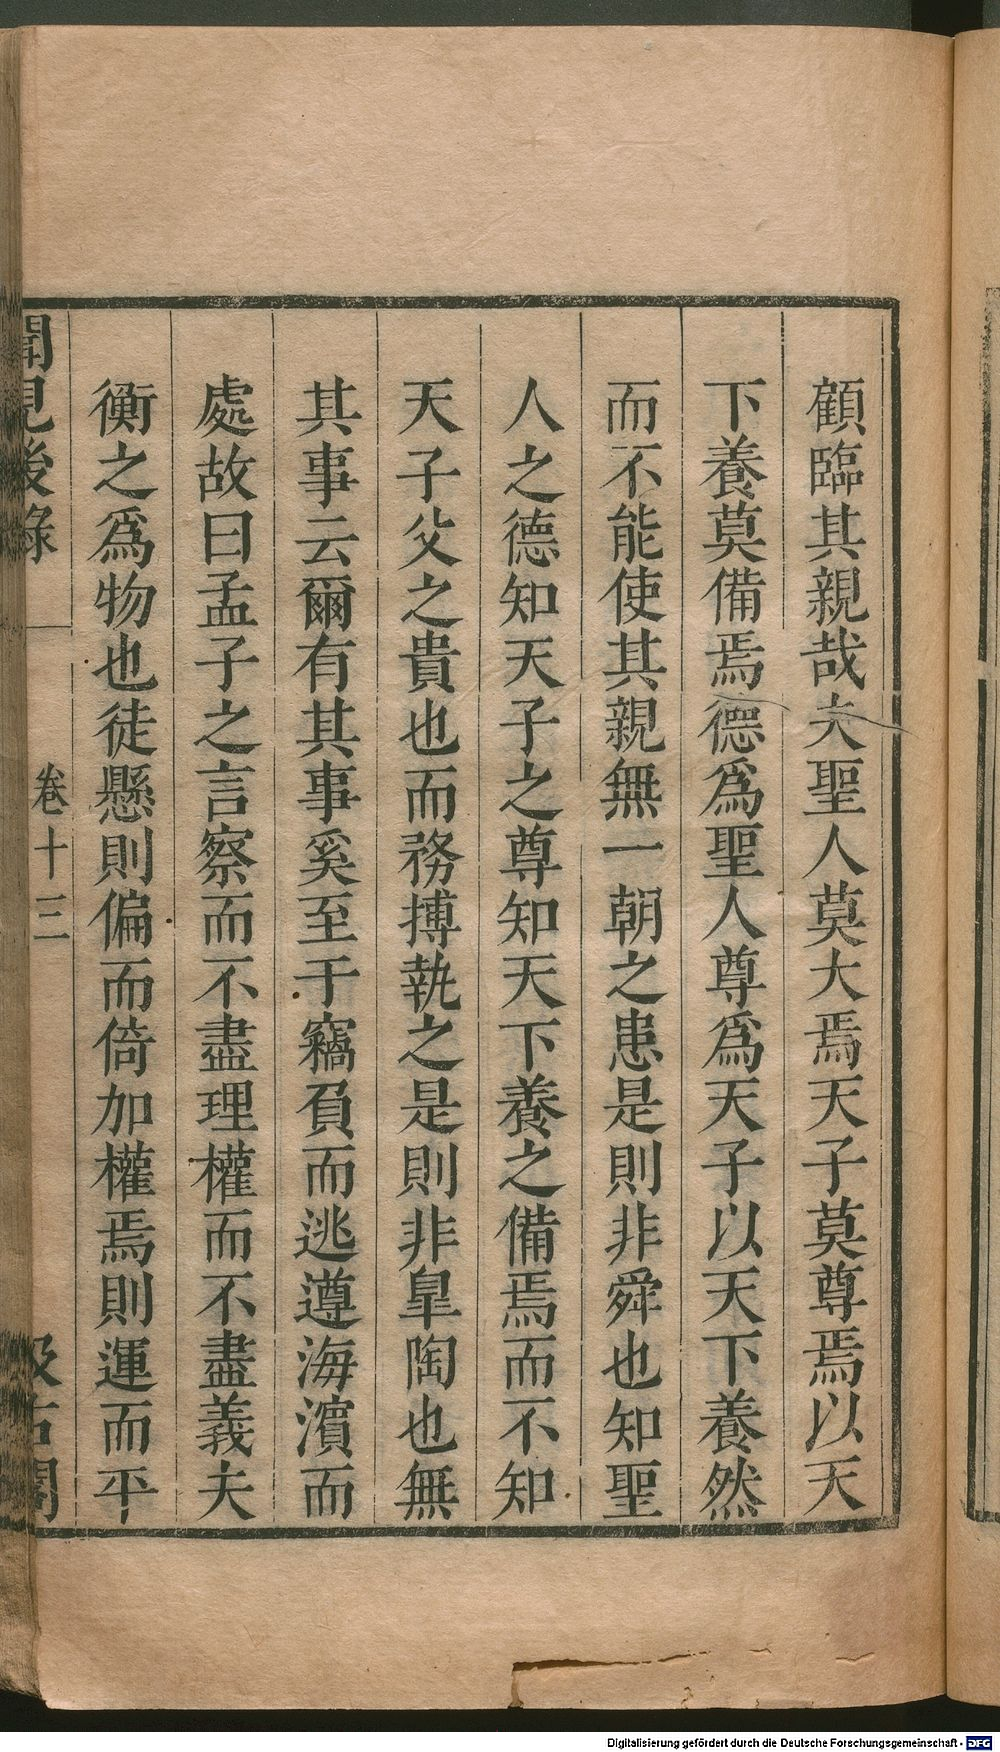 顧臨其親哉夫聖人莫大焉天子莫尊焉以天
下養莫備焉德爲聖人尊爲天子以天下養然
而不能使其親無一朝之患是則非舜也知聖
人之德知天子之尊知天下養之備焉而不知
天子父之貴也而務搏執之是則非臯陶也無
其事云爾有其事奚至于竊負而逃遵海濱而
處故曰孟子之言察而不盡理權而不盡義夫
衡之爲物也徒懸則偏而倚加權焉則運而平
聞見後錄 卷十三 汲古閣
Digitalisierung gefördert durch die Deutsche Forschungsgemeinschaft - DFG